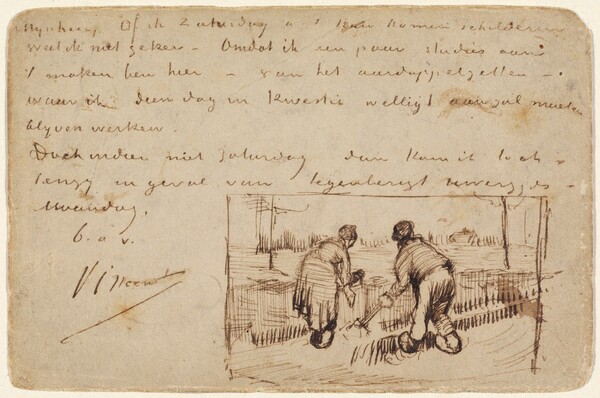 Mynheer, Of ik Zaturdag a.s kan komen schilderen
weet ik niet zeker – Omdat ik een paar studies aan
't maken ben hier – van het aardappelzetten –
waar ik dien dag in kwestie welligt aan zal moeten
blyven werken.
Doch indien niet Saturdag dan kom ik toch
tenzy in geval van tegenberigt Uwerzyds –
Maandag.
b. a. v.
Vincent